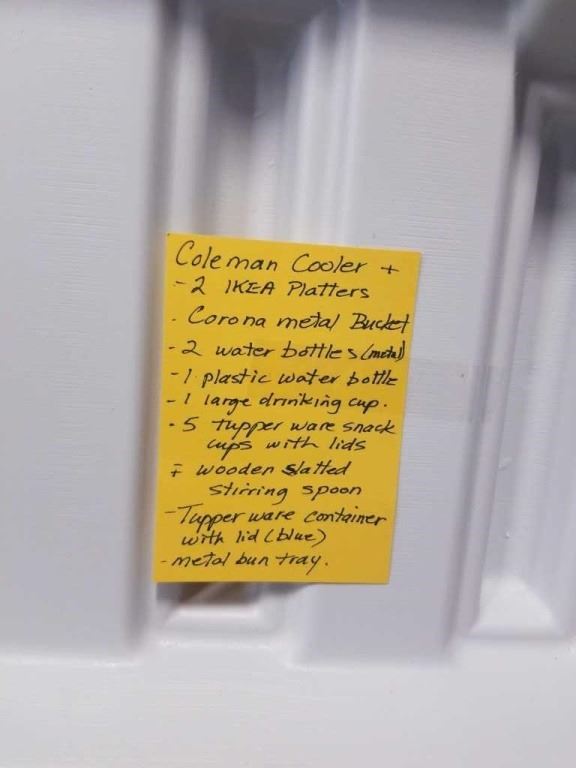 Coleman Cooler +
- 2 IKEA Platters
- Corona metal Bucket
- 2 water bottles (metal)
- 1 plastic water bottle
- 1 large drinking cup.
- 5 tupper ware snack
cups with lids
- wooden slatted
stirring spoon
- Tupper ware container
with lid (blue)
- metal bun tray.